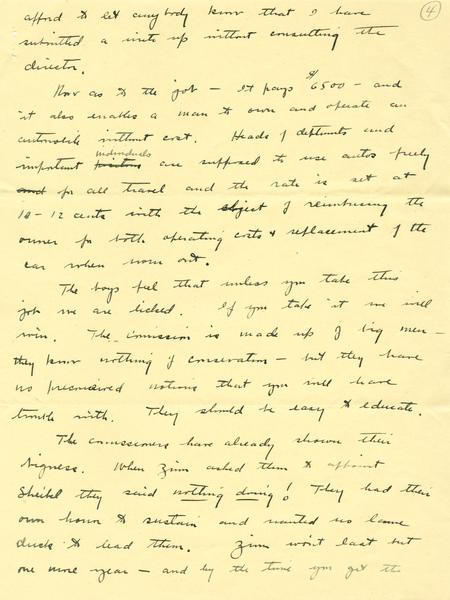 ④
afford to let anybody know that I have
submitted a write up without consulting the
director.
Now as to the job – it pays $6500 – and
it also enables a man to own and operate an
automobile without cost. Heads of deptments and
important individuals are supposed to use autos freely
and for all travel and the rate is set at
10-12 cents with the object of reimbursing the
owner for both operating costs & replacement of the
car when worn out.
The boys feel that unless you take this
job we are licked. If you take it we will
win. The comission is made up of big men –
they know nothing of conservation – but they have
no preconceived notions that you will have
trouble with. They should be easy to educate.
The comissioners have already shown their
bigness. When Zinn asked them to appoint
they said nothing doing! They had their
own honor to sustain and wanted no lame
duck to lead them. Zinn won't last but
one more year – and by the time you get the